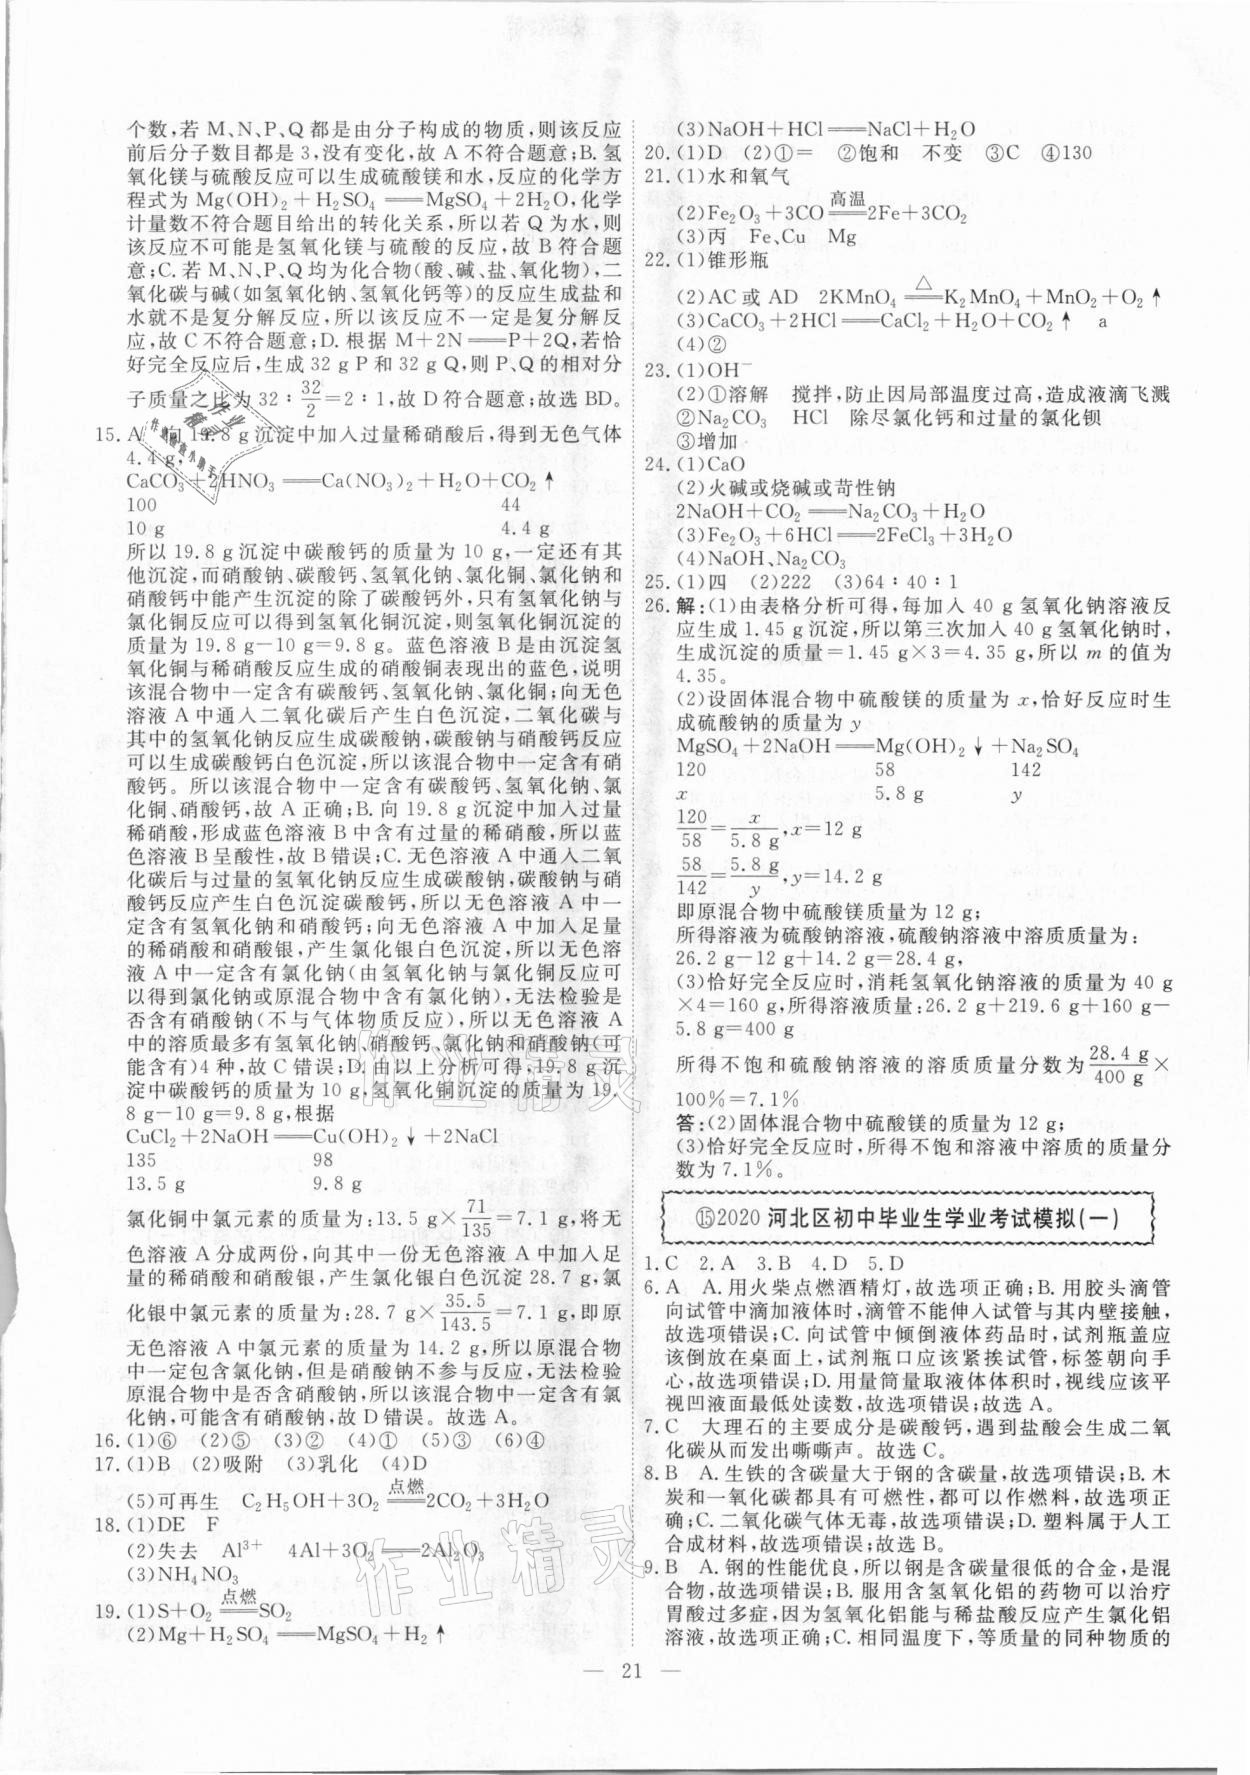 个数,若 M、N、P、Q 都是由分子构成的物质,则该反应
前后分子数目都是 3,没有变化,故 A 不符合题意;B. 氢
氧化镁与硫酸反应可以生成硫酸镁和水,反应的化学方
程式为 Mg(OH)₂+H₂SO₄══MgSO₄+2H₂O,化学
计量数不符合题目给出的转化关系,所以若 Q 为水,则
该反应不可能是氢氧化镁与硫酸的反应,故 B 符合题
意;C. 若 M、N、P、Q 均为化合物(酸、碱、盐、氧化物),二
氧化碳与碱(如氢氧化钠、氢氧化钙等)的反应生成盐和
水就不是复分解反应,所以该反应不一定是复分解反
应,故 C 不符合题意;D. 根据 M+2N══P+2Q,若恰
好完全反应后,生成 32 g P 和 32 g Q,则 P、Q 的相对分
子质量之比为 32∶32/2=2∶1,故 D 符合题意;故选 BD。
15. A 向 19.8 g 沉淀中加入过量稀硝酸后,得到无色气体
4.4 g,
CaCO₃+2HNO₃══Ca(NO₃)₂+H₂O+CO₂↑
100 44
10 g 4.4 g
所以 19.8 g 沉淀中碳酸钙的质量为 10 g,一定还有其
他沉淀,而硝酸钠、碳酸钙、氢氧化钠、氯化铜、氯化钠和
硝酸钙中能产生沉淀的除了碳酸钙外,只有氢氧化钠与
氯化铜反应可以得到氢氧化铜沉淀,则氢氧化铜沉淀的
质量为 19.8 g−10 g=9.8 g。蓝色溶液 B 是由沉淀氢
氧化铜与稀硝酸反应生成的硝酸铜表现出的蓝色,说明
该混合物中一定含有碳酸钙、氢氧化钠、氯化铜;向无色
溶液 A 中通入二氧化碳后产生白色沉淀,二氧化碳与
其中的氢氧化钠反应生成碳酸钠,碳酸钠与硝酸钙反应
可以生成碳酸钙白色沉淀,所以该混合物中一定含有硝
酸钙。所以该混合物中一定含有碳酸钙、氢氧化钠、氯
化铜、硝酸钙,故 A 正确;B. 向 19.8 g 沉淀中加入过量
稀硝酸,形成蓝色溶液 B 中含有过量的稀硝酸,所以蓝
色溶液 B 呈酸性,故 B 错误;C. 无色溶液 A 中通入二氧
化碳后与过量的氢氧化钠反应生成碳酸钠,碳酸钠与硝
酸钙反应产生白色沉淀碳酸钙,所以无色溶液 A 中一
定含有氢氧化钠和硝酸钙;向无色溶液 A 中加入足量
的稀硝酸和硝酸银,产生氯化银白色沉淀,所以无色溶
液 A 中一定含有氯化钠(由氢氧化钠与氯化铜反应可
以得到氯化钠或原混合物中含有氯化钠),无法检验是
否含有硝酸钠(不与气体物质反应),所以无色溶液 A
中的溶质最多有氢氧化钠、硝酸钙、氯化钠和硝酸钠(可
能含有)4 种,故 C 错误;D. 由以上分析可得,19.8 g 沉
淀中碳酸钙的质量为 10 g,氢氧化铜沉淀的质量为 19.
8 g−10 g=9.8 g,根据
CuCl₂+2NaOH══Cu(OH)₂↓+2NaCl
135 98
13.5 g 9.8 g
氯化铜中氯元素的质量为:13.5 g×71/135=7.1 g,将无
色溶液 A 分成两份,向其中一份无色溶液 A 中加入足
量的稀硝酸和硝酸银,产生氯化银白色沉淀 28.7 g,氯
化银中氯元素的质量为:28.7 g×35.5/143.5=7.1 g,即原
无色溶液 A 中氯元素的质量为 14.2 g,所以混合物
中一定包含氯化钠,但是硝酸钠不参与反应,无法检验
原混合物中是否含硝酸钠,所以该混合物中一定含有氯
化钠,可能含有硝酸钠,故 D 错误。故选 A。
16. (1)⑥ (2)⑤ (3)② (4)① (5)③ (6)④
17. (1)B (2)吸附 (3)乳化 (4)D
(5)可再生 C₂H₅OH+3O₂ 点燃══ 2CO₂+3H₂O
18. (1)DE F
(2)失去 Al³⁺ 4Al+3O₂══2Al₂O₃
(3)NH₄NO₃
19. (1)S+O₂ 点燃══ SO₂
(2)Mg+H₂SO₄══MgSO₄+H₂↑
(3)NaOH+HCl══NaCl+H₂O
20. (1)D (2)①= ②饱和 不变 ③C ④130
21. (1)水和氧气
(2)Fe₂O₃+3CO 高温══ 2Fe+3CO₂
(3)丙 Fe、Cu Mg
22. (1)锥形瓶
(2)AC 或 AD 2KMnO₄ △══ K₂MnO₄+MnO₂+O₂↑
(3)CaCO₃+2HCl══CaCl₂+H₂O+CO₂↑ a
(4)②
23. (1)OH⁻
(2)①溶解 搅拌,防止因局部温度过高,造成液滴飞溅
②Na₂CO₃ HCl 除尽氯化钙和过量的氯化钡
③增加
24. (1)CaO
(2)火碱或烧碱或苛性钠
2NaOH+CO₂══Na₂CO₃+H₂O
(3)Fe₂O₃+6HCl══2FeCl₃+3H₂O
(4)NaOH、Na₂CO₃
25. (1)四 (2)222 (3)64∶40∶1
26. 解:(1)由表格分析可得,每加入 40 g 氢氧化钠溶液反
应生成 1.45 g 沉淀,所以第三次加入 40 g 氢氧化钠时,
生成沉淀的质量=1.45 g×3=4.35 g,所以 m 的值为
4.35。
(2)设固体混合物中硫酸镁的质量为 x,恰好反应时生
成硫酸钠的质量为 y
MgSO₄+2NaOH══Mg(OH)₂↓+Na₂SO₄
120 58 142
x 5.8 g y
120/58=x/5.8 g,x=12 g
58/142=5.8 g/y,y=14.2 g
即原混合物中硫酸镁质量为 12 g;
所得溶液为硫酸钠溶液,硫酸钠溶液中溶质质量为:
26.2 g−12 g+14.2 g=28.4 g,
(3)恰好完全反应时,消耗氢氧化钠溶液的质量为 40 g
×4=160 g,所得溶液质量:26.2 g+219.6 g+160 g−
5.8 g=400 g
所得不饱和硫酸钠溶液的溶质质量分数为28.4 g/400 g×
100%=7.1%
答:(2)固体混合物中硫酸镁的质量为 12 g;
(3)恰好完全反应时,所得不饱和溶液中溶质的质量分
数为 7.1%。
⑮2020 河北区初中毕业生学业考试模拟(一)
1. C 2. A 3. B 4. D 5. D
6. A A. 用火柴点燃酒精灯,故选项正确;B. 用胶头滴管
向试管中滴加液体时,滴管不能伸入试管与其内壁接触,
故选项错误;C. 向试管中倾倒液体药品时,试剂瓶盖应
该倒放在桌面上,试剂瓶口应该紧挨试管,标签朝向手
心,故选项错误;D. 用量筒量取液体体积时,视线应该平
视凹液面最低处读数,故选项错误;故选 A。
7. C 大理石的主要成分是碳酸钙,遇到盐酸会生成二氧
化碳从而发出嘶嘶声。故选 C。
8. B A. 生铁的含碳量大于钢的含碳量,故选项错误;B. 木
炭和一氧化碳都具有可燃性,都可以作燃料,故选项正
确;C. 二氧化碳气体无毒,故选项错误;D. 塑料属于人工
合成材料,故选项错误,故选 B。
9. B A. 钢的性能优良,所以钢是含碳量很低的合金,是混
合物,故选项错误;B. 服用含氢氧化铝的药物可以治疗
胃酸过多症,因为氢氧化铝能与稀盐酸反应产生氯化铝
溶液,故选项正确;C. 相同温度下,等质量的同种物质的
— 21 —
作业精灵
作业精灵